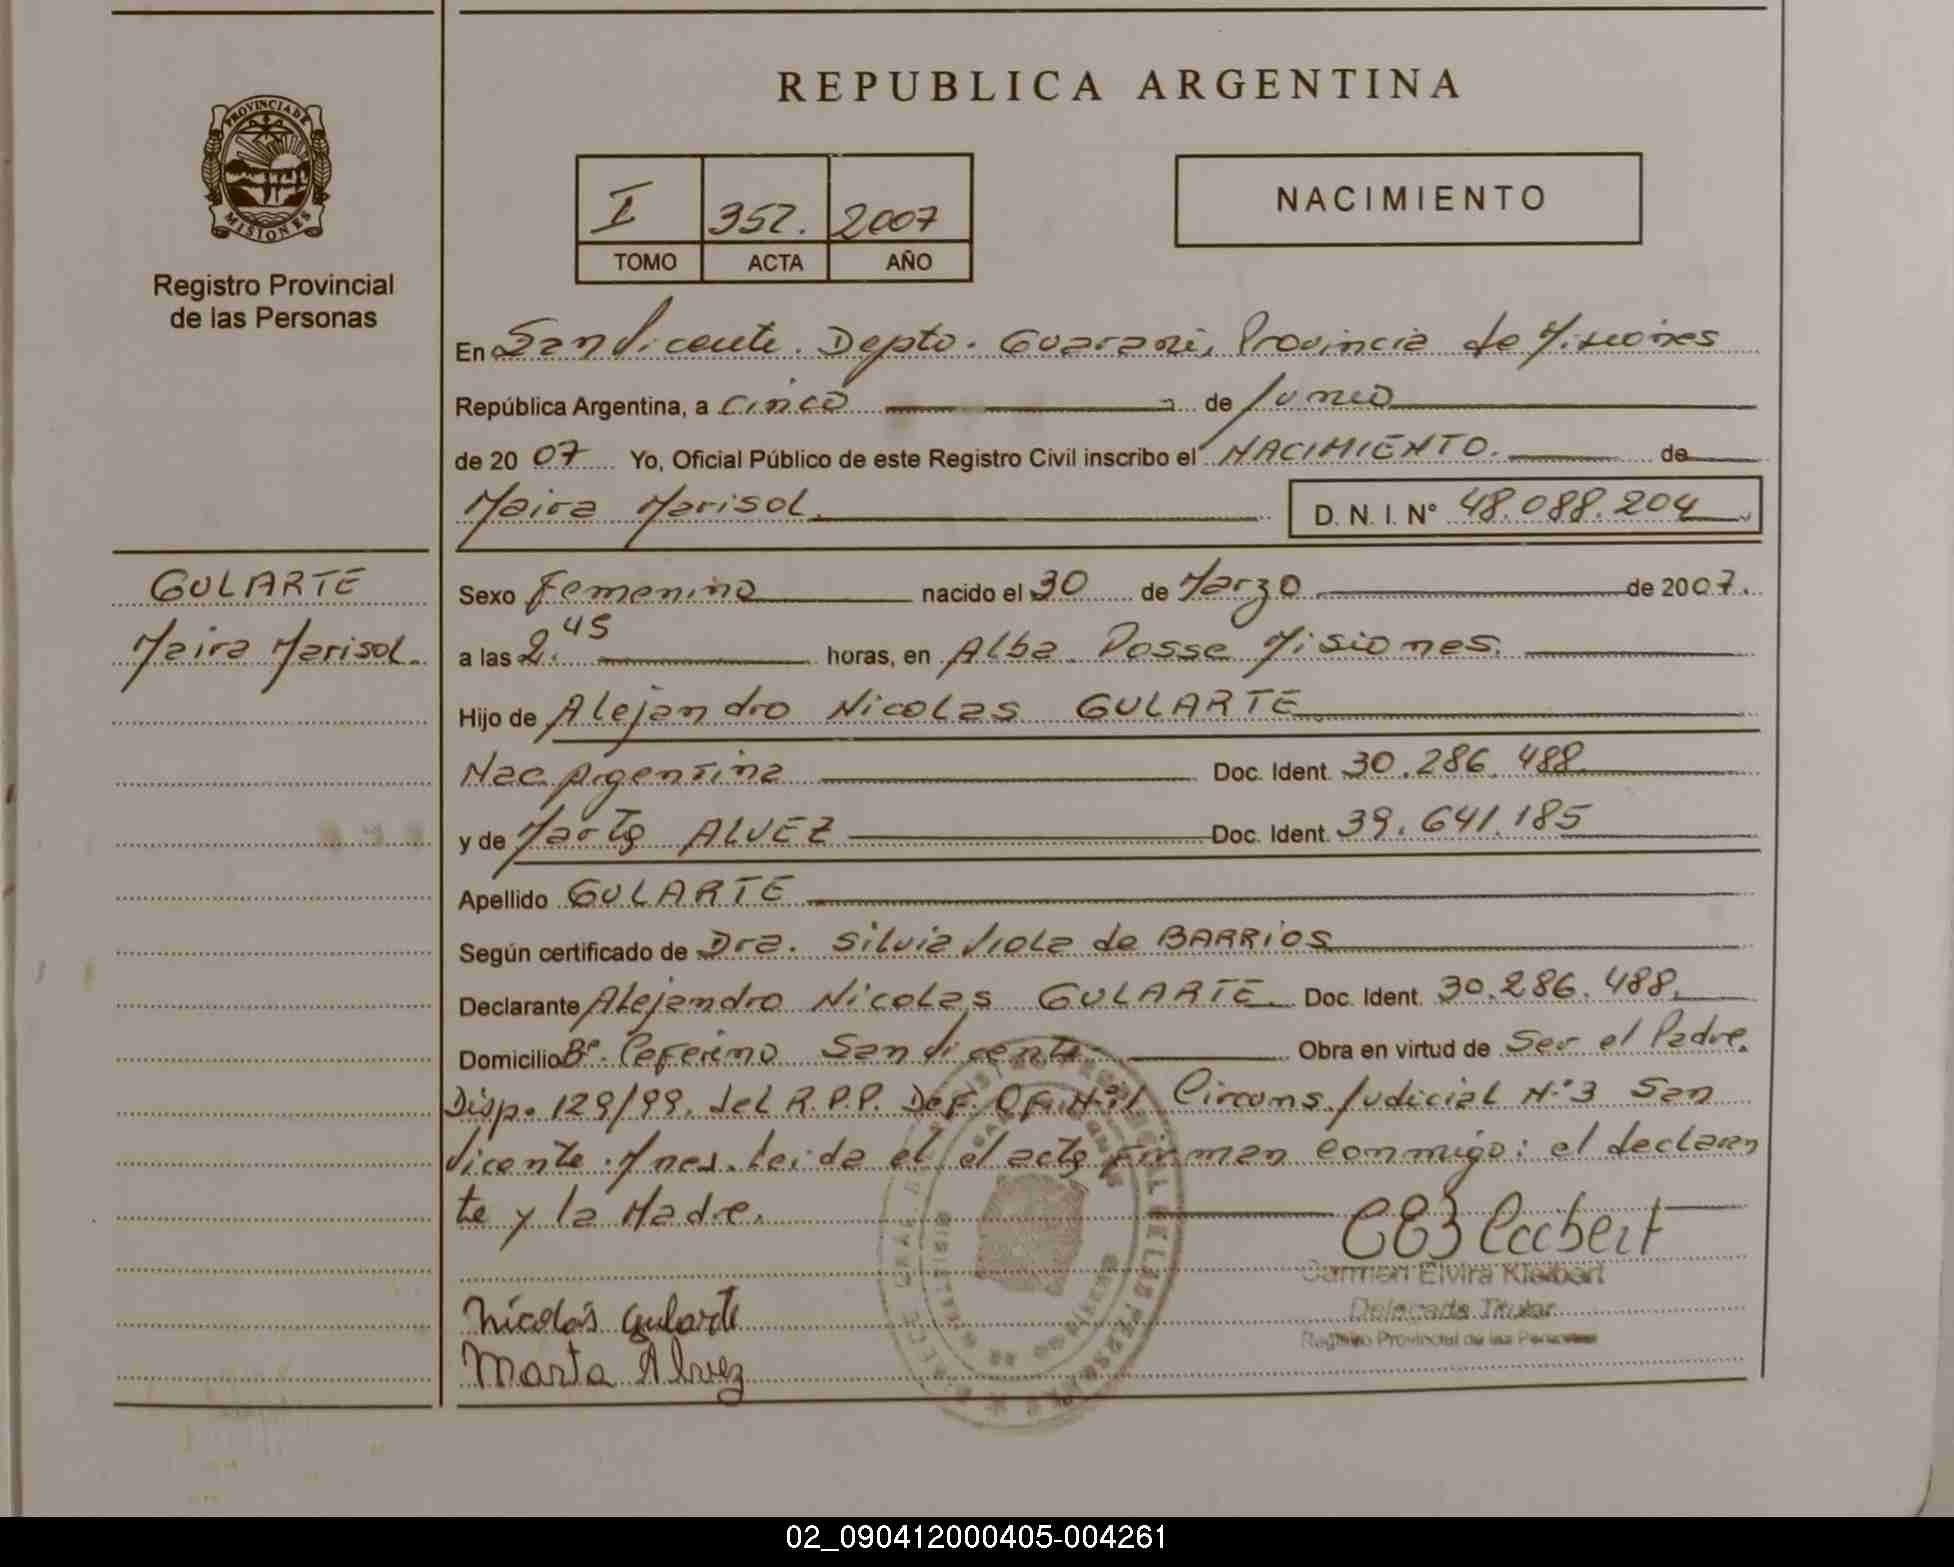 REPUBLICA ARGENTINA
PROVINCIA DE
MISIONES
Registro Provincial
de las Personas
I 352. 2007
TOMO ACTA AÑO
NACIMIENTO
En San Vicente. Depto. Guarani, Provincia de Misiones
República Argentina, a cinco de Junio
de 2007 Yo, Oficial Público de este Registro Civil inscribo el NACIMIENTO. de
Maira Marisol. D. N. I. N° 48.088.204
GULARTE
Maira Marisol.
Sexo Femenino nacido el 30 de Marzo de 2007.
a las 2.45 horas, en Alba Posse Misiones.
Hijo de Alejandro Nicolas GULARTE
Nac Argentina Doc. Ident. 30.286.488
y de Marta ALVEZ Doc. Ident. 39.641.185
Apellido GULARTE
Según certificado de Dra. Silvia Viola de BARRIOS
Declarante Alejandro Nicolas GULARTE. Doc. Ident. 30.286.488.
Domicilio B°. Ceferino San Vicente Obra en virtud de Ser el Padre.
Disp. 129/99. del R.P.P. Def. Of. N°1 Circuns. Judicial N°3 San
Vicente. Mnes. Leida el el acta firman conmigo: el declaran
te y la Madre.
Carmen Elvira Kleibert
Delegada Titular
Registro Provincial de las Personas
Nicolás Gularte
Marta Alvez
02_090412000405-004261